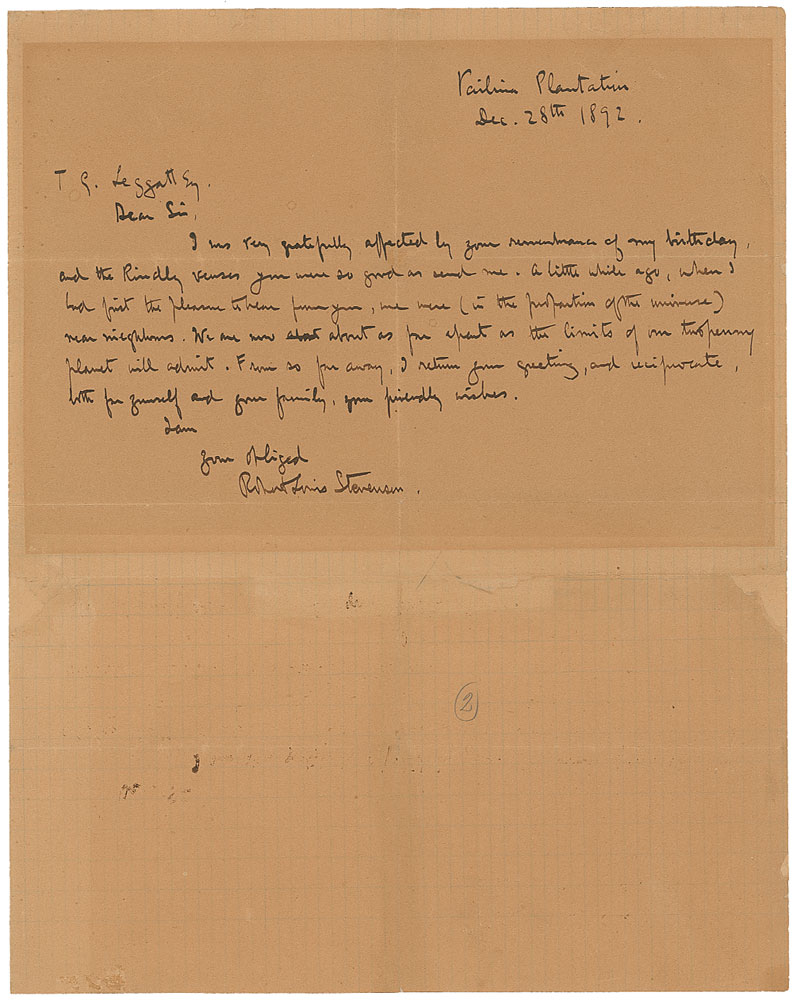 Vailima Plantation
Dec. 28th 1892.
T G. Leggatt Esq.
Dear Sir,
I was very gratefully affected by your remembrance of my birthday,
and the kindly verses you were so good as send me. A little while ago, when I
had first the pleasure to hear from you, we were (in the proportion of the universe)
near neighbours. We are now about as far apart as the limits of our twopenny
planet will admit. From so far away, I return your greeting, and reciprocate,
both for yourself and your family, your friendly wishes.
I am
your obliged
Robert Louis Stevenson.
2